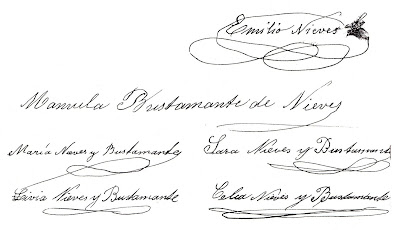 Emilio Nieves
Manuela Bustamante de Nieves
María Nieves y Bustamante
Sara Nieves y Bustamante
Livia Nieves y Bustamante
Celia Nieves y Bustamante